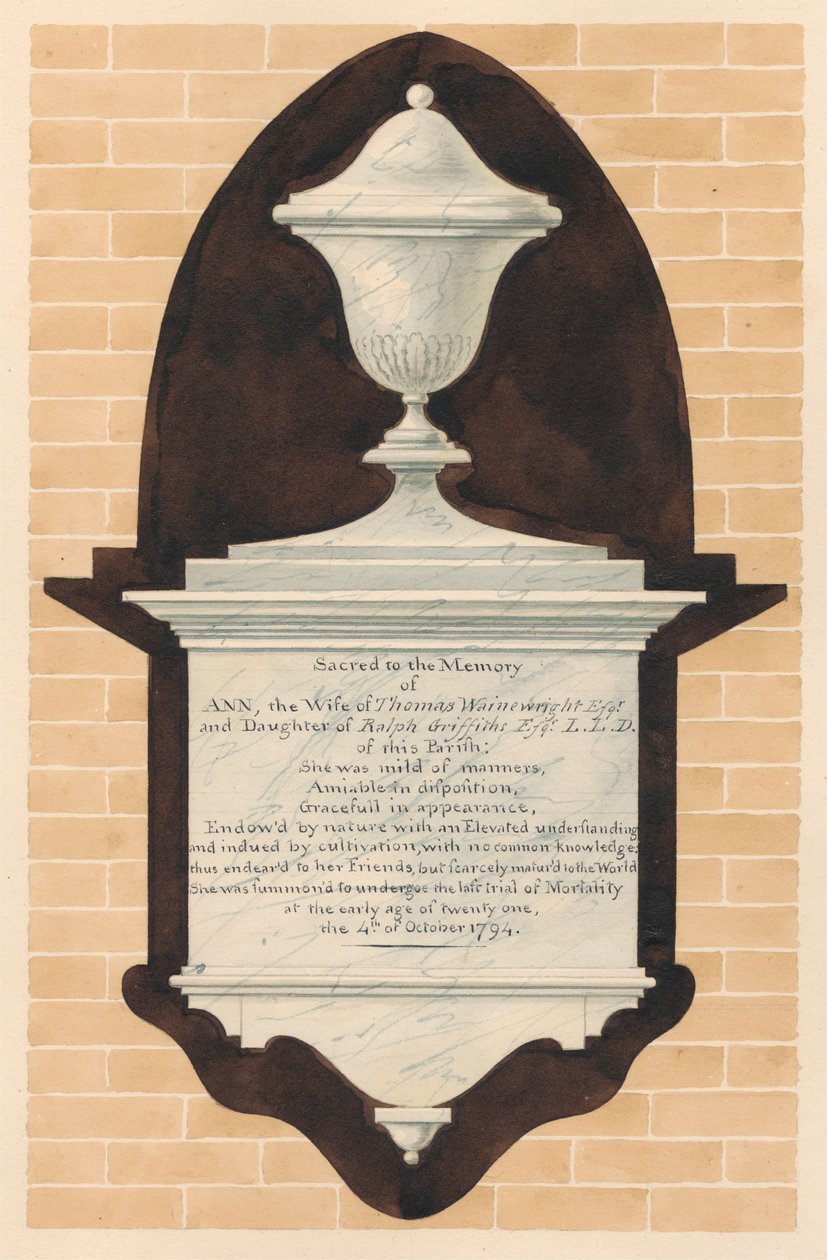 Sacred to the Memory
of
ANN, the Wife of Thomas Wainewright Eſqr
and Daughter of Ralph Griffiths Eſqr L.L.D.
of this Pariſh;
She was mild of manners,
Amiable in diſpoſition,
Gracefull in appearance,
Endow'd by nature with an Elevated underſtanding
and indued by cultivation, with no common knowledge;
thus endear'd to her Friends, but ſcarcely matur'd to the World
She was ſummon'd to undergoe the laſt trial of Mortality
at the early age of twenty one,
the 4th of October 1794.